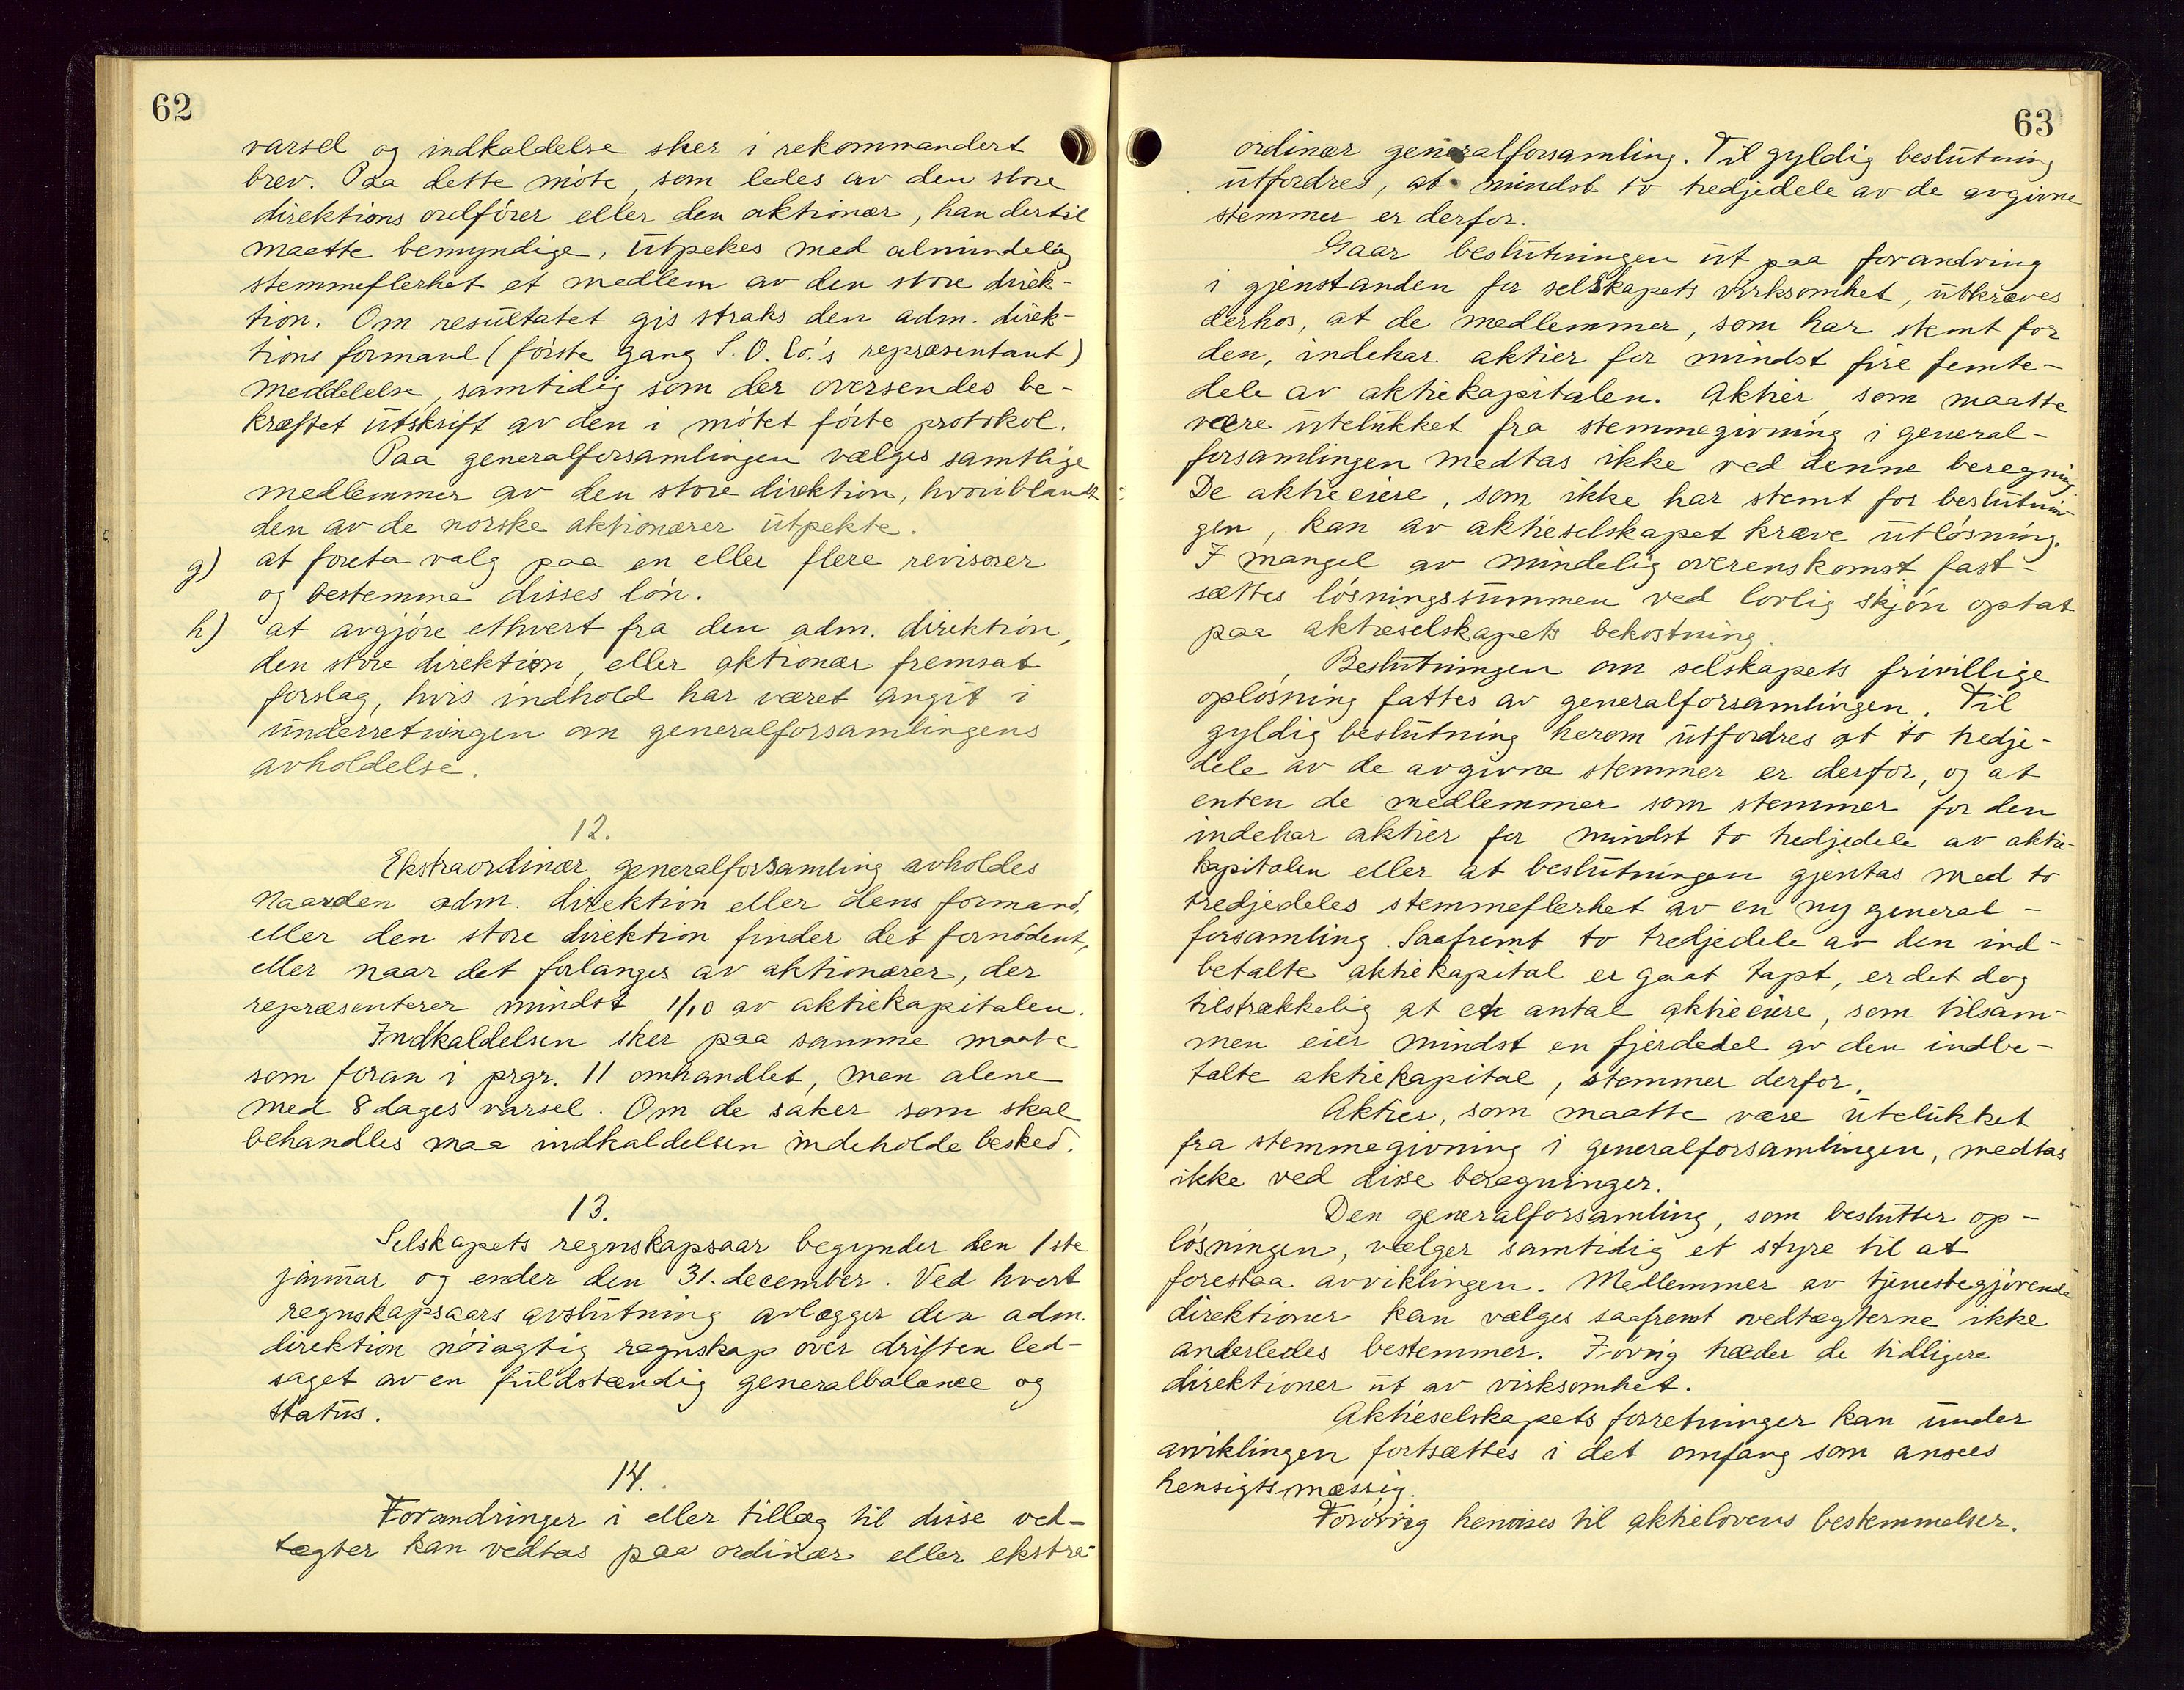 62
varsel og indkaldelse sker i rekommandert
brev. Paa dette möte, som ledes av den store
direktions ordförer eller den aktionær, han dertil
maatte bemyndige, utpekes med almindelig
stemmeflerhet et medlem av den store direk-
tion. Om resultatet gis straks den adm. direk-
tions formand (förste gang S. O. Co.'s repræsentant)
meddelelse, samtidig som der oversendes be-
kræftet utskrift av den i mötet förte protokol.
Paa generalforsamlingen vælges samtlige
medlemmer av den store direktion, hvoriblandt
den av de norske aktionærer utpekte.
g) at foreta valg paa en eller flere revisorer
og bestemme disses lön.
h) at avgjöre ethvert fra den adm. direktion,
den store direktion, eller aktionær fremsat
forslag, hvis indhold har været angit i
underretningen om generalforsamlingens
avholdelse.
12.
Ekstraordinær generalforsamling avholdes
naar den adm. direktion eller dens formand,
eller den store direktion finder det fornödent,
eller naar det forlanges av aktionærer, der
repræsenterer mindst 1/10 av aktiekapitalen.
Indkaldelsen sker paa samme maate
som foran i prgr. 11 omhandlet, men alene
med 8 dages varsel. Om de saker som skal
behandles maa indkaldelsen indeholde besked.
13.
Selskapets regnskapsaar begynder den 1ste
januar og ender den 31. december. Ved hvert
regnskapsaars avslutning avlægger den adm.
direktion nöiagtig regnskap over driften led-
saget av en fuldstændig generalbalance og
status.
14.
Forandringer i eller tillæg til disse ved-
tægter kan vedtas paa ordinær eller ekstra-
63
ordinær generalforsamling. Til gyldig beslutning
utfordres, at mindst to tredjedele av de avgivne
stemmer er derfor.
Gaar beslutningen ut paa forandring
i gjenstanden for selskapets virksomhet, utkræves
derhos, at de medlemmer, som har stemt for
den, indehar aktier for mindst fire femte-
dele av aktiekapitalen. Aktier, som maatte
være utelukket fra stemmegivning i general-
forsamlingen medtas ikke ved denne beregning.
De aktieeiere, som ikke har stemt for beslutnin-
gen, kan av aktieselskapet kræve utlösning.
I mangel av mindelig overenskomst fast-
sættes lösningssummen ved lovlig skjön optat
paa aktieselskapets bekostning.
Beslutningen om selskapets frivillige
oplösning fattes av generalforsamlingen. Til
gyldig beslutning herom utfordres at to tredje-
dele av de avgivne stemmer er derfor, og at
enten de medlemmer som stemmer for den
indehar aktier for mindst to tredjedele av aktie-
kapitalen eller at beslutningen gjentas med to
tredjedeles stemmeflerhet av en ny general-
forsamling. Saafremt to tredjedele av den ind-
betalte aktiekapital er gaat tapt, er det dog
tilstrækkelig at et antal aktieeiere, som tilsam-
men eier mindst en fjerdedel av den indbe-
talte aktiekapital, stemmer derfor.
Aktier, som maatte være utelukket
fra stemmegivning i generalforsamlingen, medtas
ikke ved disse beregninger.
Den generalforsamling, som beslutter op-
lösningen, vælger samtidig et styre til at
forestaa avviklingen. Medlemmer av tjenestegjörende
direktioner kan vælges saafremt vedtægterne ikke
anderledes bestemmer. I övrig træder de tidligere
direktioner ut av virksomhet.
Aktieselskapets forretninger kan under
avviklingen fortsættes i det omfang som ansees
hensigtsmæssig.
Forövrig henvises til aktielovens bestemmelser.